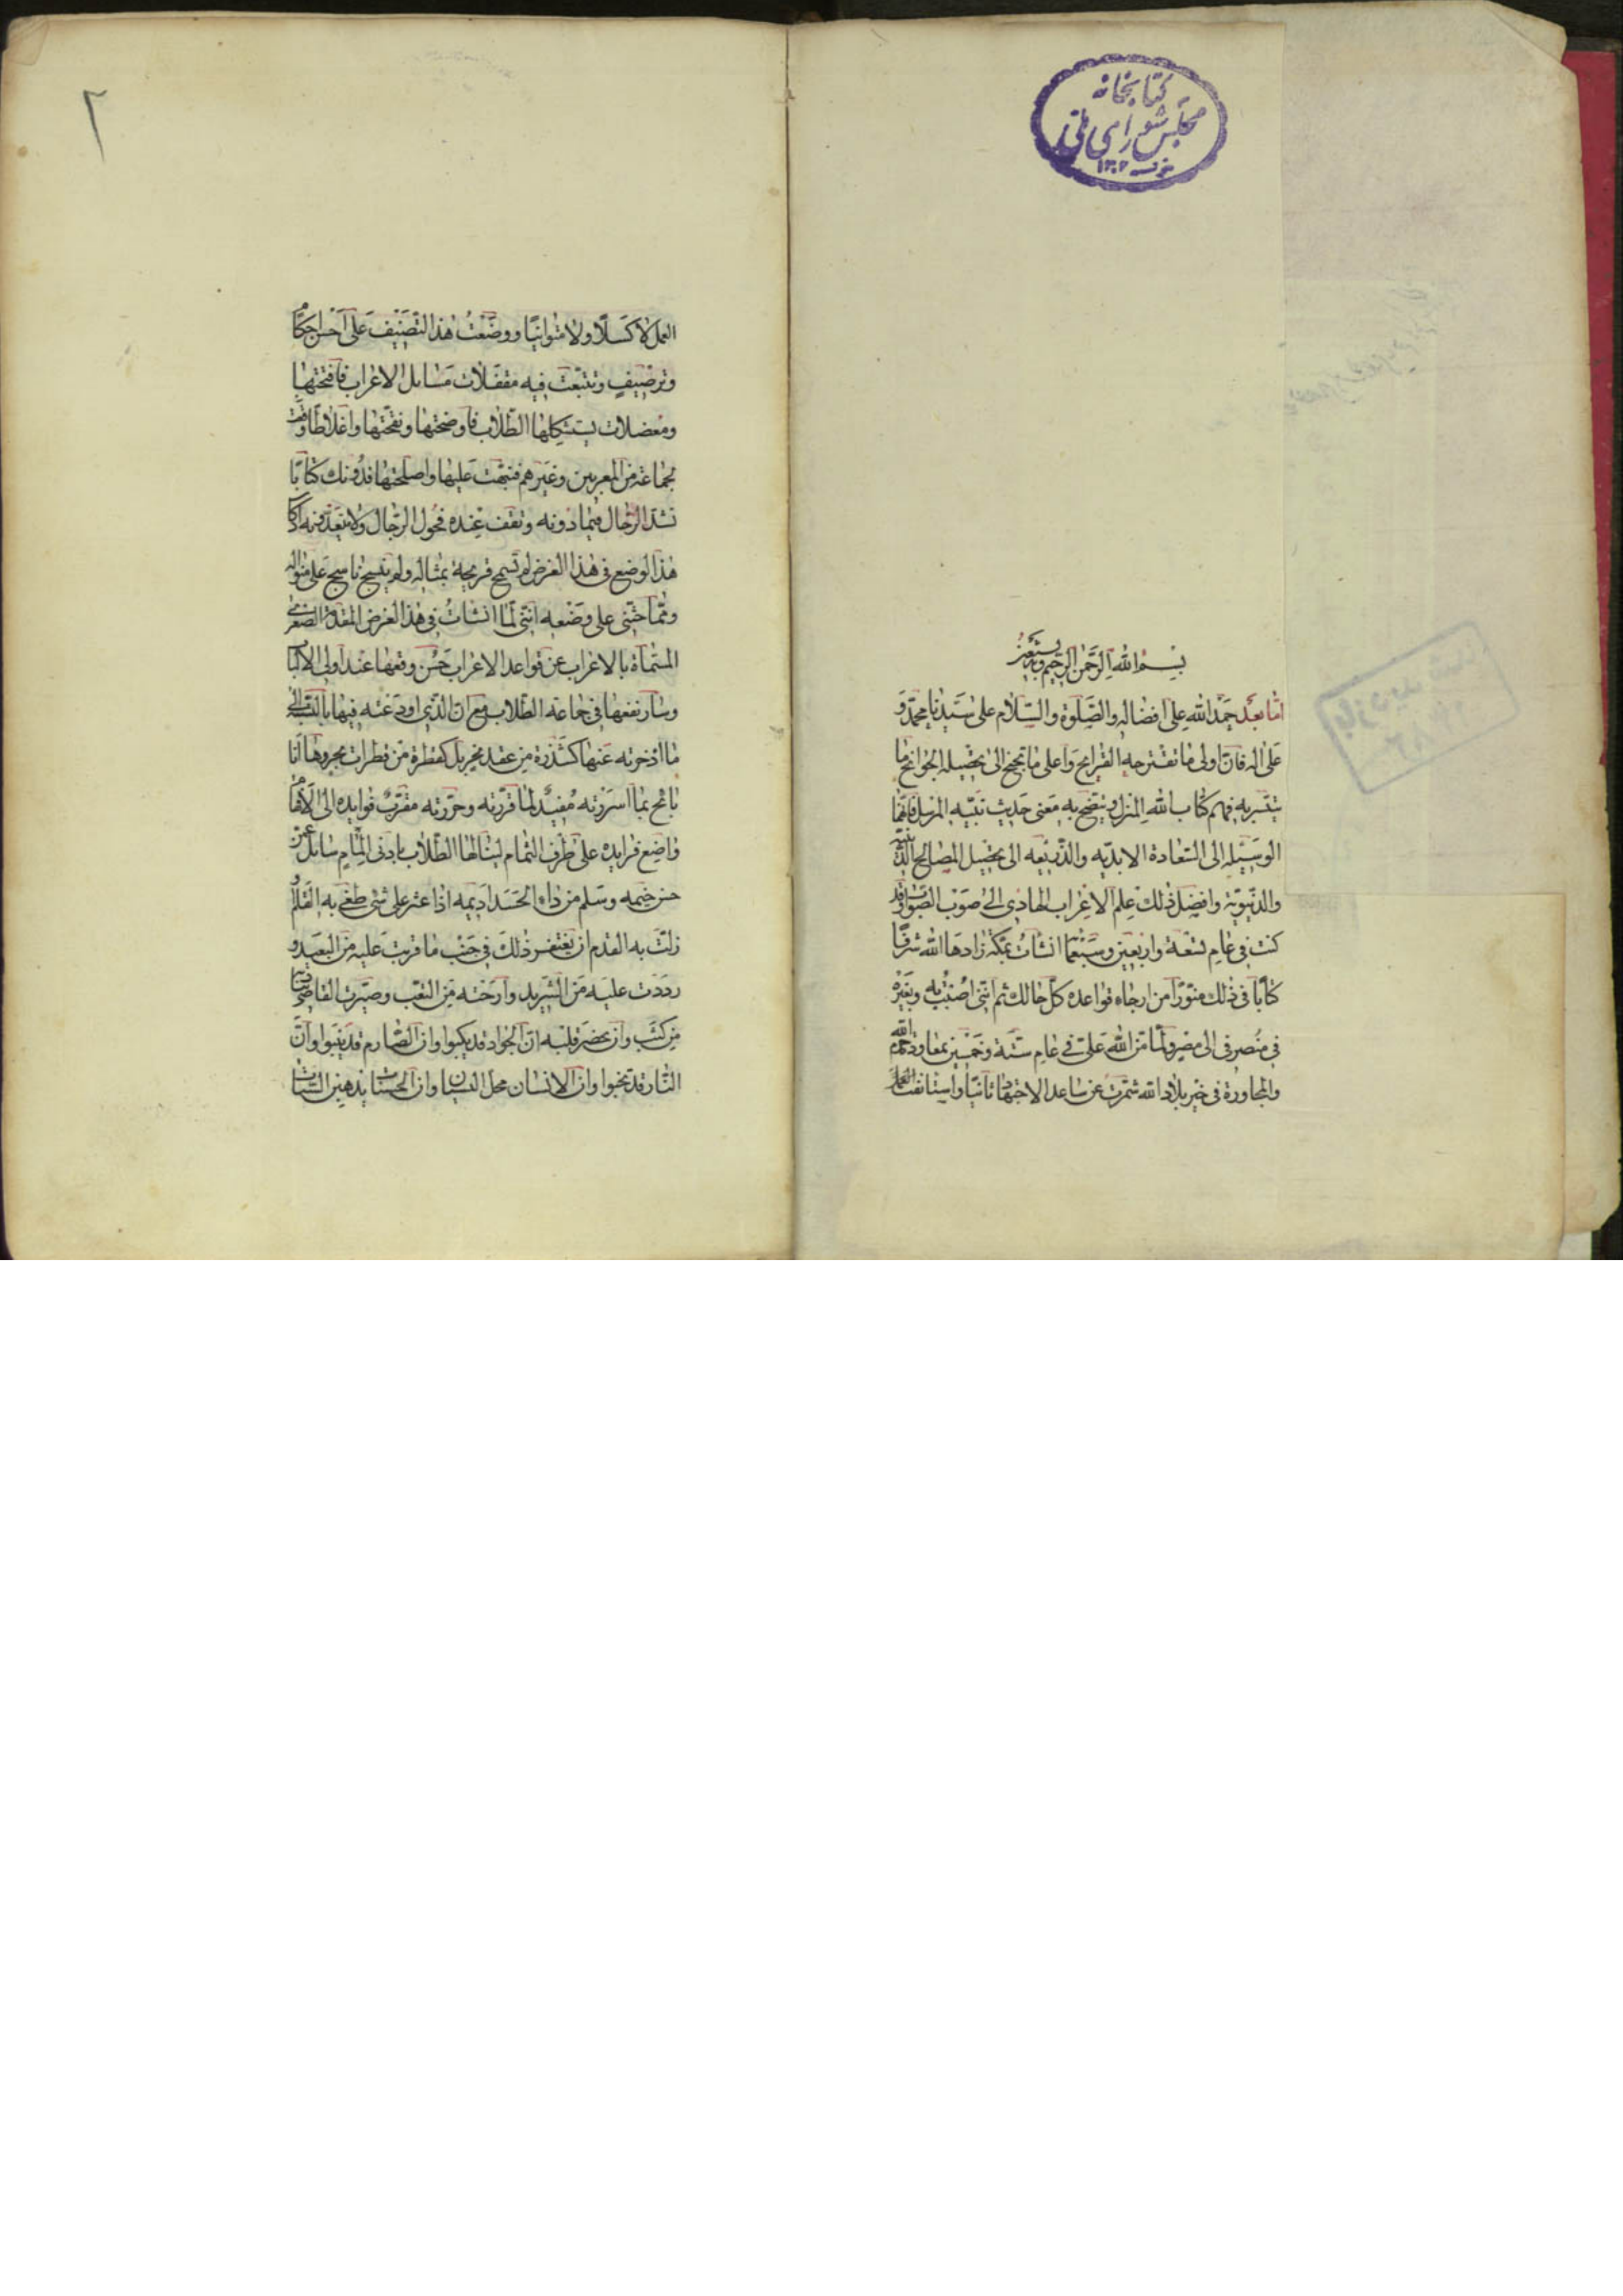 كتابخانه
مجلس شورای ملی
١٣٠٢
بسم الله الرحمن الرحيم وبه نستعين
اما بعد حمد الله على افضاله والصلوة والسلام على سيدنا محمد و
على اله فان اولى ما تقترحه القرايح واعلى ما تجنح الى تحصيله الجوانح ما
يتيسر به فهم كتاب الله المنزل ويتضح به معنى حديث نبيه المرسل فانهما
الوسيله الى السعادة الابديه والذريعه الى تحصيل المصالح الدينيه
والدنيويه وافضل ذلك علم الاعراب الهادى الى صوب الصواب وقد
كنت فى عام تسعة واربعين وسبعما انشات بمكة زادها الله شرفا
كتابا فى ذلك منورا من ارجاء قواعده كل حالك ثم اننى اصبت به وبغيره
فى منصرفى الى مصر ولما من الله على فى عام ستة وخمسين بمعاودة حرم الله
والمجاورة فى خير بلاد الله شمرت عن ساعد الاجتهاد ثانيا واستانفت العمل
٢
العمل لا كسلا ولا متوانيا ووضعت هذا التصنيف على احسن احكام
وترصيف وتتبعت فيه مقفلات مسايل الاعراب فافتتحتها
ومعضلات يستشكلها الطلاب فاوضحتها ونقحتها واغلاطا وقعت
لجماعة من المعربين وغيرهم فنبهت عليها واصلحتها فدونك كتابا
تشد الرحال فيما دونه وتقف عنده فحول الرجال ولا يعدونه اذ كان
هذا الوضع فى هذا الغرض لم تسمح قريحة بمثاله ولم ينسج ناسج على منواله
ومما حثنى على وضعه اننى لما انشات فى هذا الغرض المقدمة الصغرى
المسماة بالاعراب عن قواعد الاعراب حسن وقعها عند اولى الالباب
وسار نفعها فى جماعة الطلاب مع ان الذى اودعته فيها بالنسبة الى
ما ادخرته عنها كشذرة من عقد نحر بل كقطرة من قطرات بحر وها انا
بائح بما اسررته مفيد لما قررته وحررته مقرب فوايده الى الافهام
واضع فرايده على طرف الثمام لينالها الطلاب بادنى المام سائل من
حسن خيمه وسلم من داء الحسد اديمه اذا عثر على شى طغى به القلم او
زلت به القدم ان يغتفر ذلك فى جنب ما قربت عليه من البعيد و
رددت عليه من الشريد وارحته من التعب وصيرت القاصى يناديه
من كثب وان يحضر قلبه ان الجواد قد يكبوا وان الصارم قد ينبوا وان
النار قد تخبوا وان الانسان محل النسيان وان الحسنات يذهبن السيئات